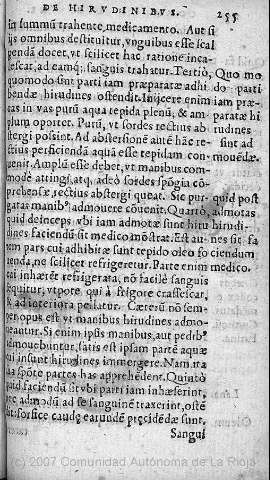 DE HIRUDINIBUS. 255
in summũ trahente, medicamento. Aut si
ijs omnibus destituitur, vnguibus esse scal
pendã docet, vt scilicet hac ratione inca-
lescat, ad eamq; sanguis trahatur. Tertiò,
quomodo sunt parti iam præparatæ adhi
bendæ hirudines ostendit. Inijcere enim
eas in vas purũ aqua tepida plenũ, & am-
plum oportet. Purũ, vt sordes rectius ab
stergi possint. Ad abstersionẽ autẽ hãc re-
ctius perficiendã aquã esse tepidam con-
uenit. Amplũ esse debet, vt manibus com-
modè attingi, atq, adeò sordes spõgia cõ-
prehensæ, rectius abstergi queat. Sic pur-
gatas manib⁹ admouere cõuenit. Quartò,
quid deinceps vbi iam admotæ sunt hiru
dines faciendũ sit medico mõstrat. Est au-
tem pars cui adhibitæ sunt tepido oleo fo
uenda, ne scilicet refrigeretur. Parte enim
cui inhærẽt refrigerata, nõ facilè sanguis
sequitur, vtpote qui à frigore crassescat,
& ad interiora pellatur. Cæterũ nõ sem-
per opus est vt manibus hirudines admo-
ueantur. Si enim ipsis manibus, aut pedib⁹
admouebuntur, satis est ipsam partẽ aquæ
cui insunt hirudines immergere. Nam ita
sua spõte partes has apprehẽdent. Quintò
quid faciendũ sit vbi parti iam inhæserint,
nec admodũ ad se sanguinẽ traxerint, ostẽ
dit: forfice caudę earundẽ pręcidẽdæ sunt.
Sangui
Quo mo
do parti
iam præ-
paratæ hi
rudines
sint ad
mouẽdæ.
quid post
admotas
hirudi-
nes sit fa
ciendum
medico.
(c) 2007 Comunidad Autónoma de La Rioja